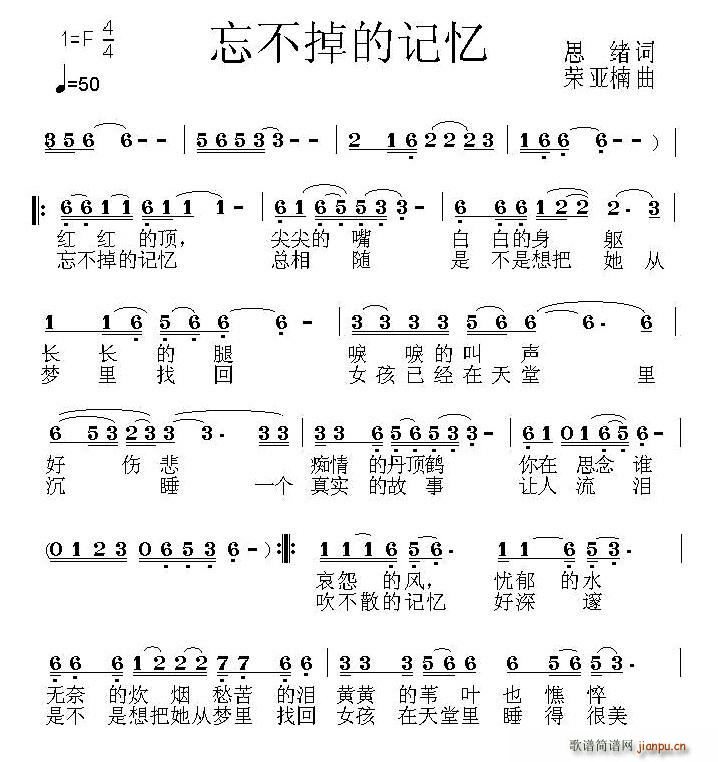 忘不掉的记忆
1=F 4/4
♩=50
思 绪 词
荣亚楠 曲
3 5 6 6 - - | 5 6 5 3 3 - - | 2 1 6 2 2 2 3 | 1 6 6 6 - - ) |
6 6 1 1 6 1 1 1 - | 6 1 6 5 5 3 3 - | 6 6 6 1 2 2 2 · 3 |
红 红 的顶, 尖尖的 嘴 白 白的身 躯
忘不掉的记忆 总相 随 是 不是想把 她 从
1 1 6 5 6 6 6 - | 3 3 3 3 5 5 6 6 · 6 |
长 长 的 腿 唳 唳的叫 声
梦 里 找 回 女孩已经在天堂 里
6 5 3 2 3 3 3 · 3 3 | 3 3 6 5 5 3 5 - | 6 1 0 1 6 5 - |
好 伤 悲 痴情 的丹顶鹤 你在 思念 谁
沉 睡 一个 真实 的故 事 让人 流 泪
( 0 1 2 3 0 6 5 3 6 - ) 1 1 1 6 5 6 · 1 1 6 5 3 · |
哀怨 的风, 忧郁 的水
吹不散的记忆 好深 邃
6 6 6 1 2 2 7 7 6 6 | 3 3 3 2 1 6 6 5 5 3 3 |
无奈 的炊 烟 愁苦 的泪 黄黄 的苇 叶 也 憔 悴
是不 是想把她从梦里 找回 女孩 在天堂里 睡 得 很美
歌谱简谱网 jianpu.cn